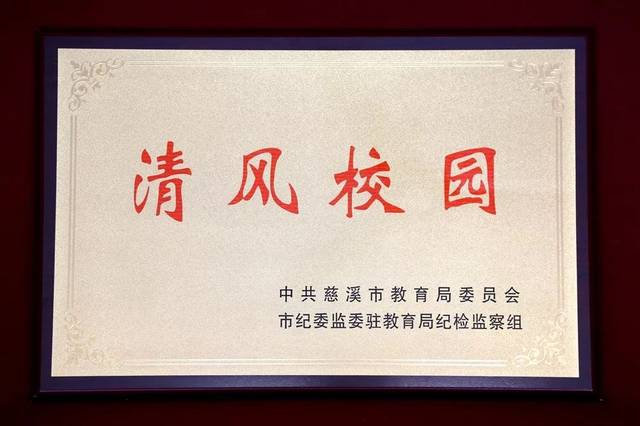 清风校园
中共慈溪市教育局委员会
市纪委监委驻教育局纪检监察组